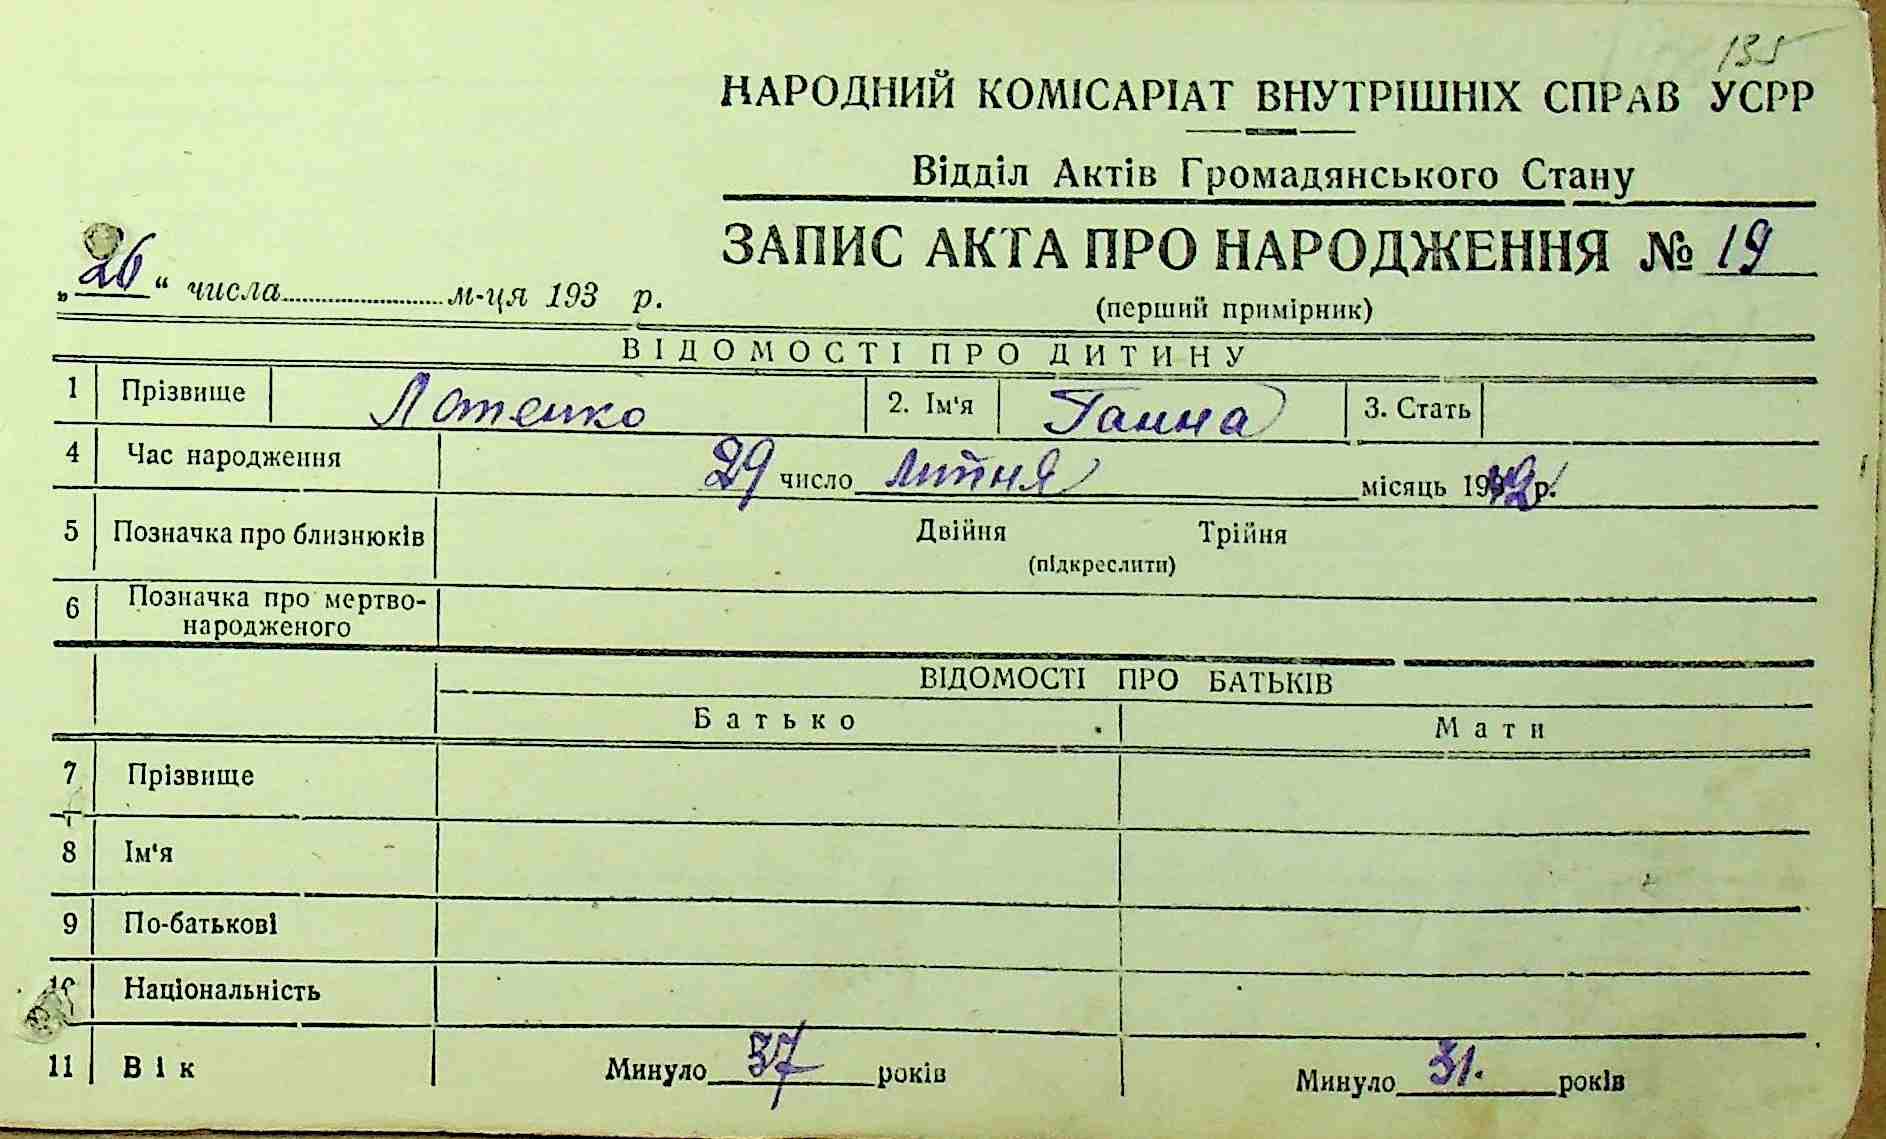 135
НАРОДНИЙ КОМІСАРІАТ ВНУТРІШНІХ СПРАВ УСРР
Відділ Актів Громадянського Стану
ЗАПИС АКТА ПРО НАРОДЖЕННЯ № 19
(перший примірник)
„26“ числа м-ця 193 р.
ВІДОМОСТІ ПРО ДИТИНУ
1 Прізвище Лотенко 2. Ім'я Ганна 3. Стать
4 Час народження 29 число липня місяць 1942 р.
5 Позначка про близнюків Двійня Трійня
(підкреслити)
6 Позначка про мертво-
народженого
ВІДОМОСТІ ПРО БАТЬКІВ
Батько Мати
7 Прізвище
8 Ім'я
9 По-батькові
10 Національність
11 Вік Минуло 37 років Минуло 31. років